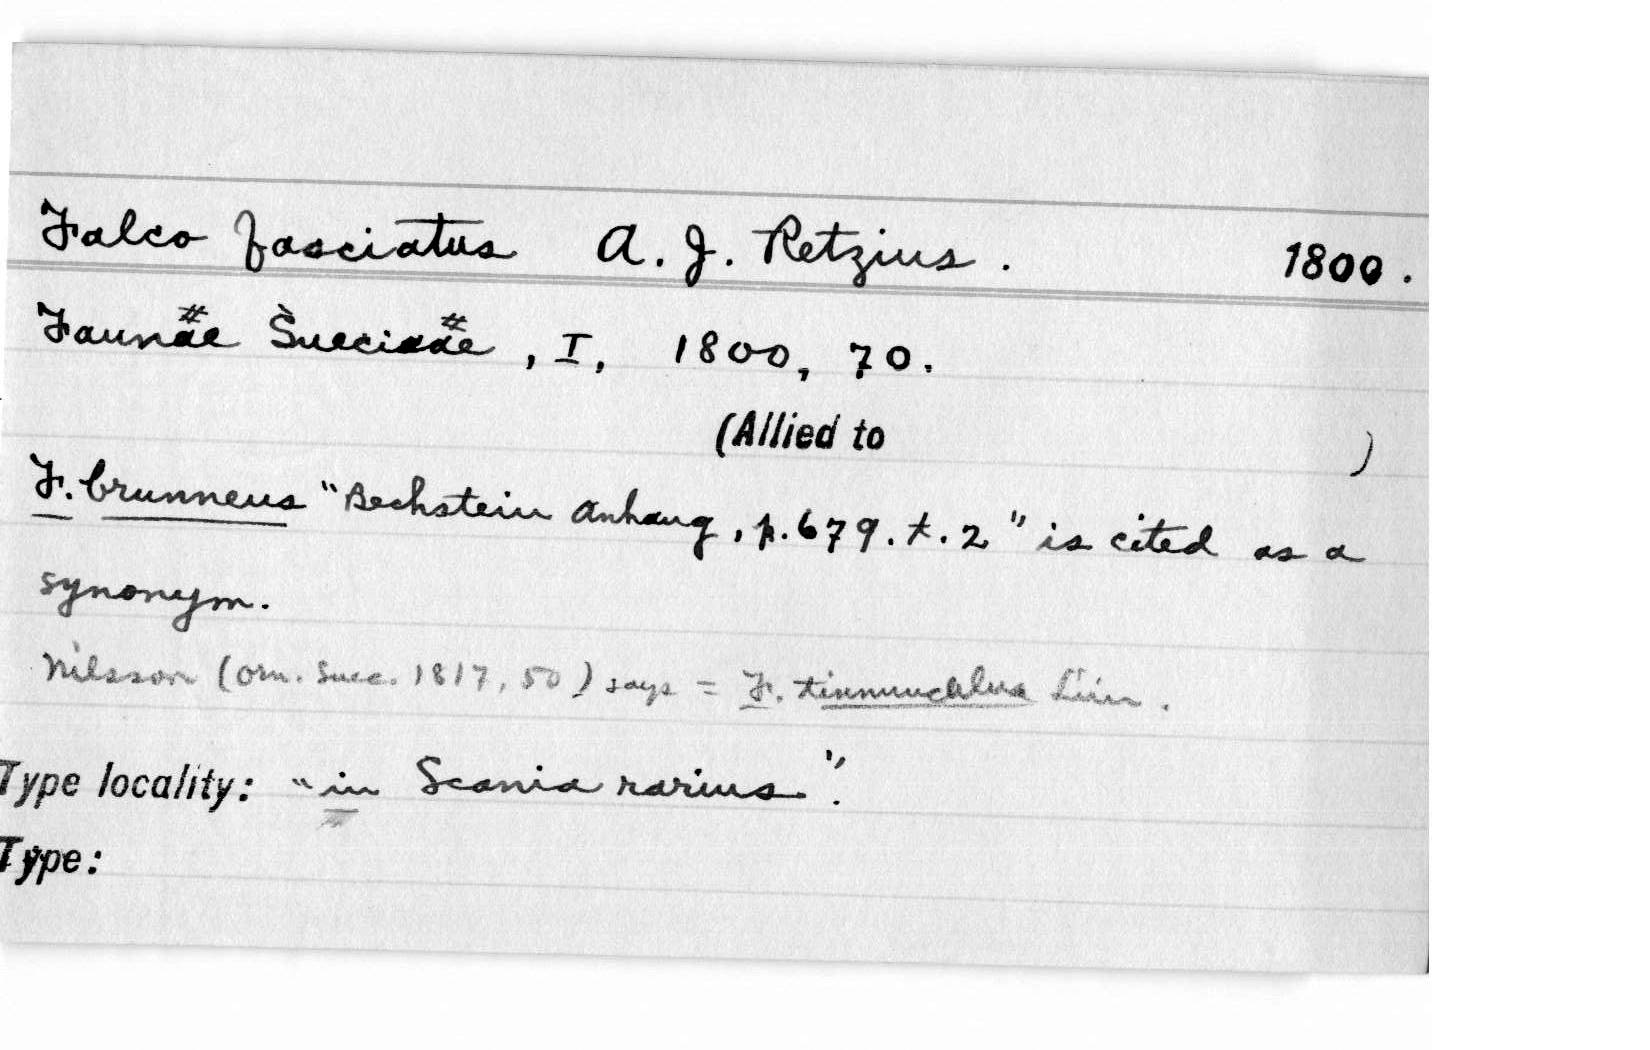 Falco fasciatus A. J. Retzius. 1800.
Faunæ Sueciæ, I, 1800, 70.
(Allied to )
F. brunneus "Bechstein Anhang, p. 679. t. 2" is cited as a
synonym.
Nilsson (Orn. Suec. 1817, 50) says = F. tinnunculus Linn.
Type locality: "in Scania rarius".
Type: